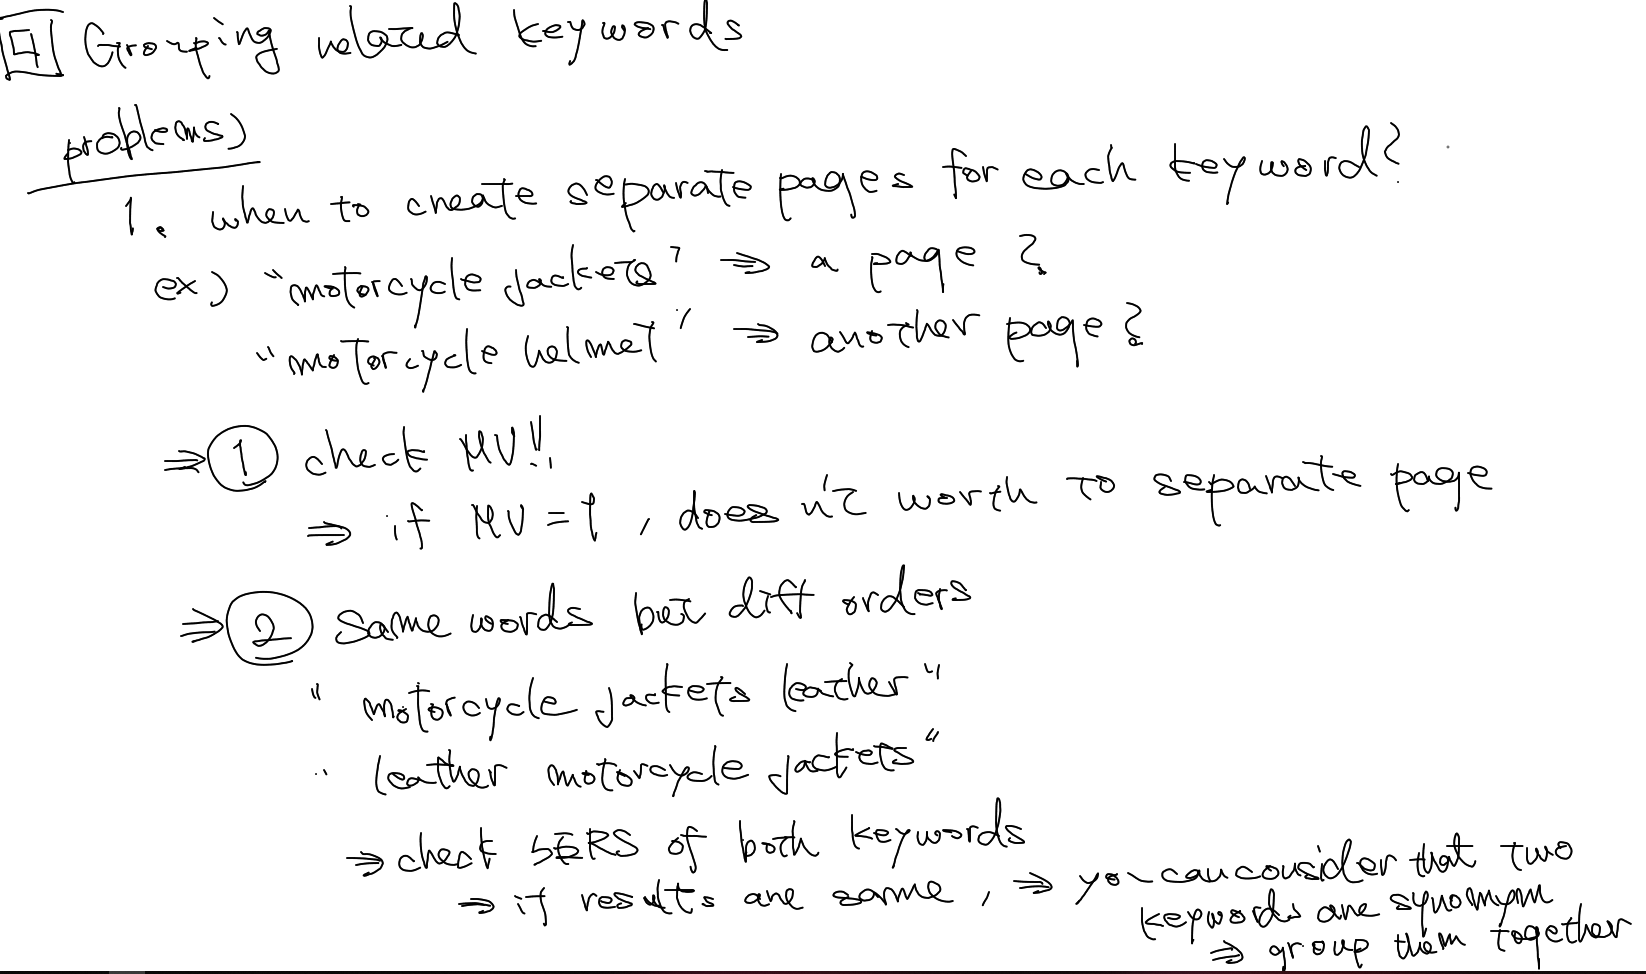 4 Grouping related keywords
problems)
1. when to create separate pages for each keyword?
ex) "motorcycle jackets" ⇒ a page?
"motorcycle helmet" ⇒ another page?
⇒ ① check MV!!
⇒ if MV = 1, doesn't worth to separate page
⇒ ② Same words but diff orders
" motorcycle jackets leather "
" leather motorcycle jackets "
⇒ check SERS of both keywords
⇒ if results are same, ⇒ you can consider that two
keywords are synomym
⇒ group them together